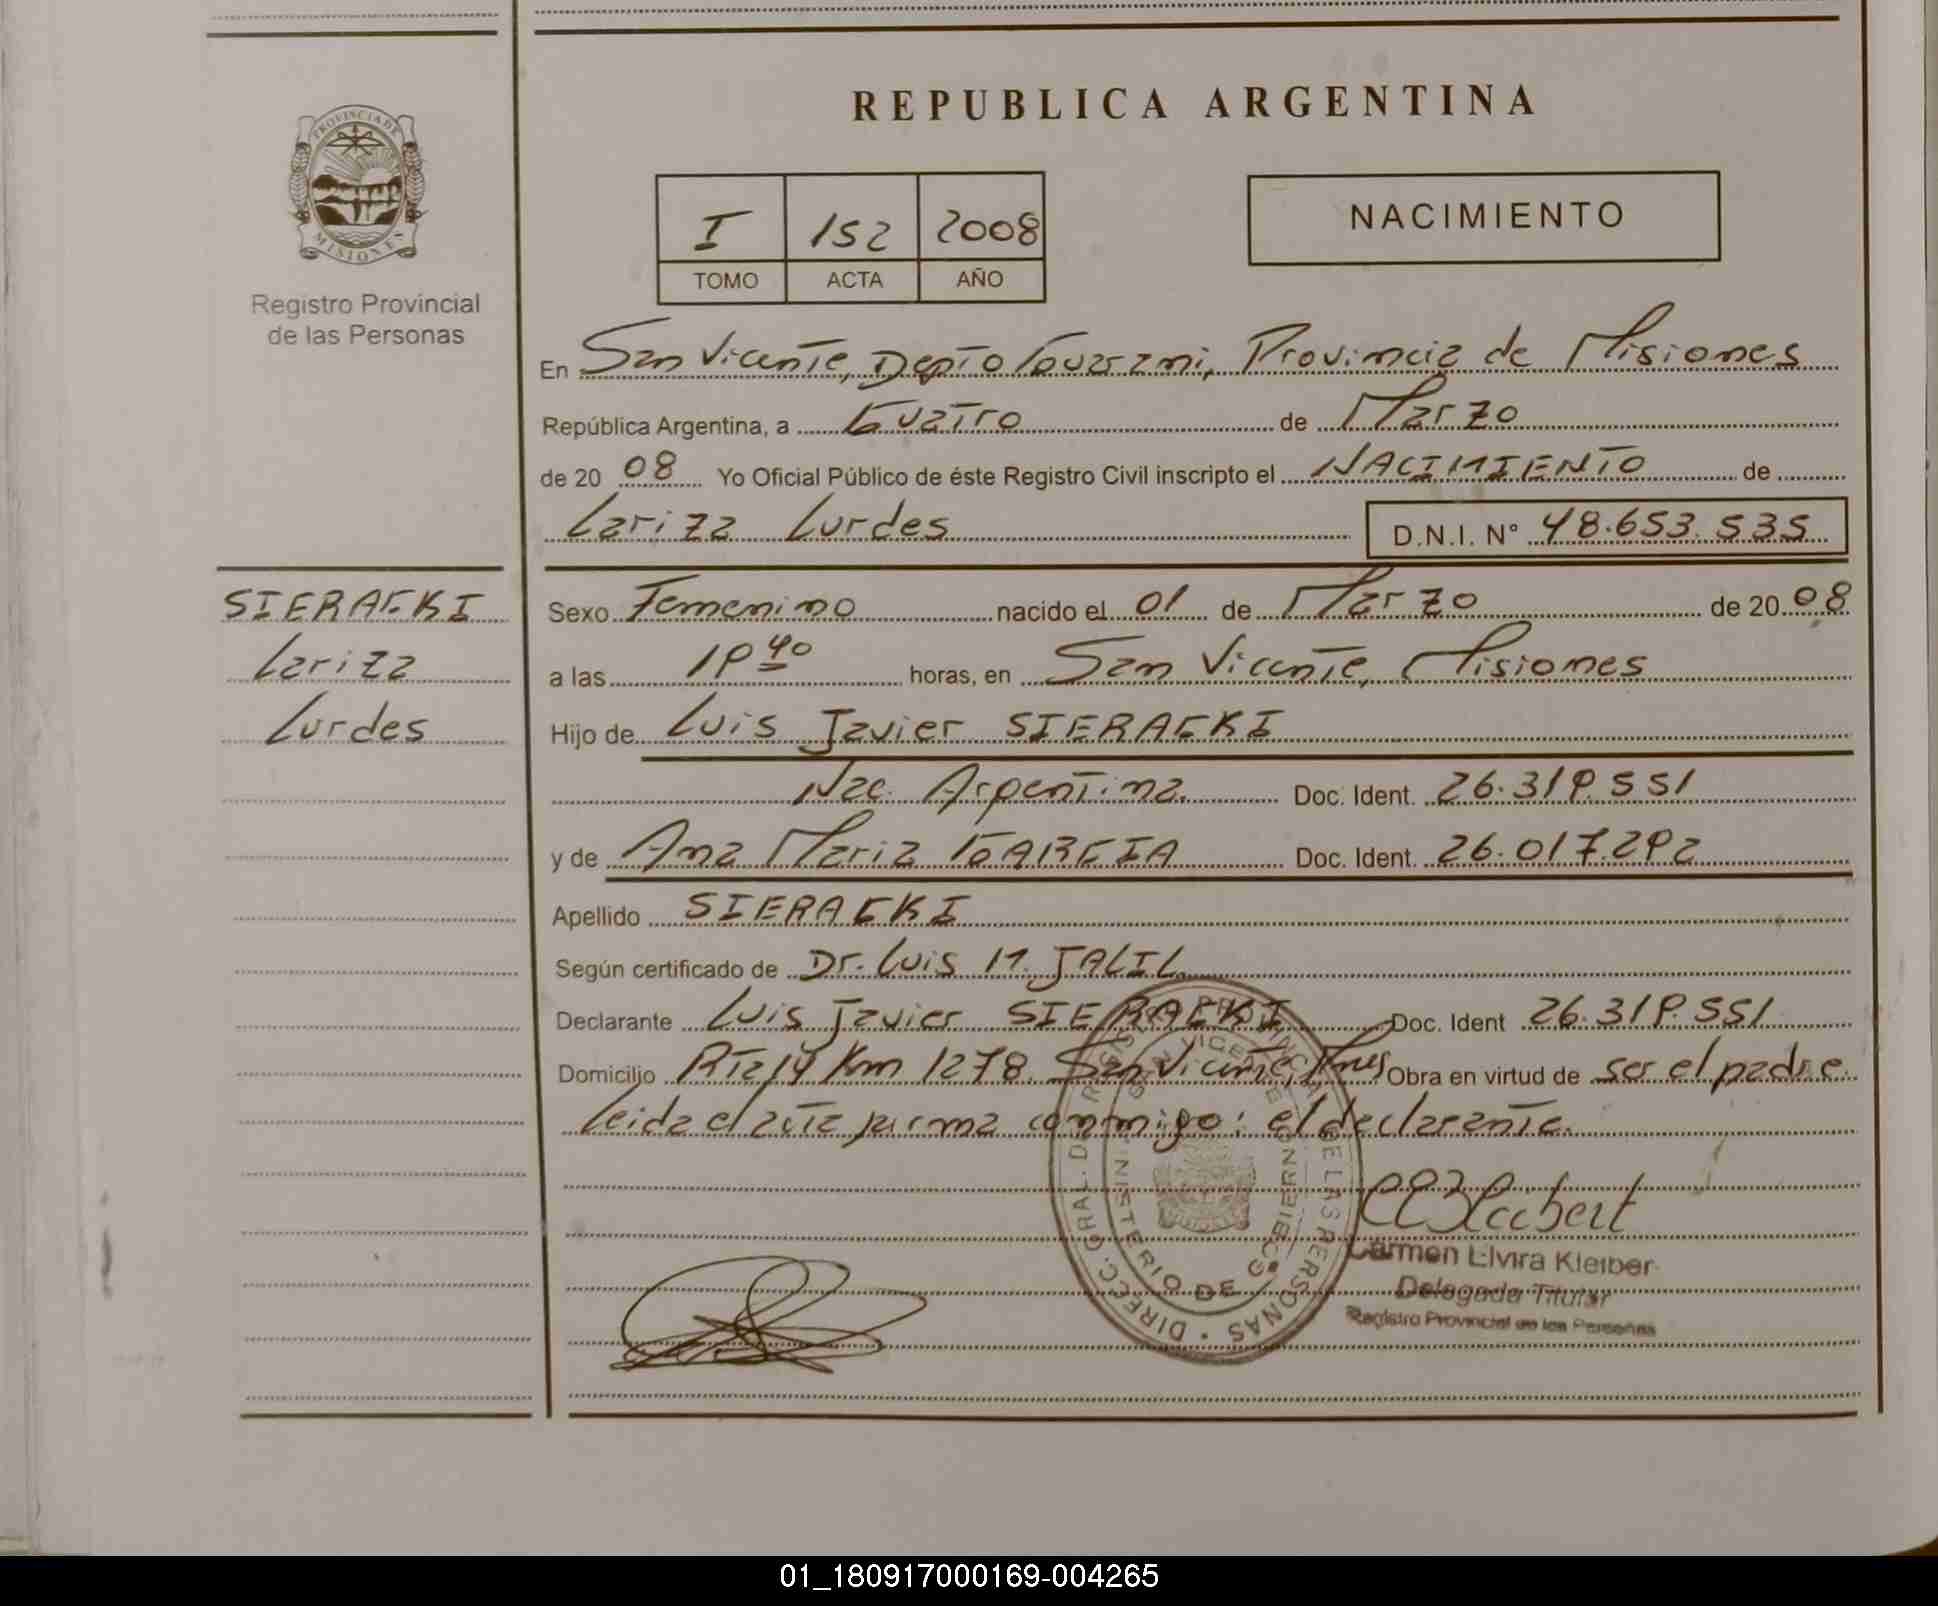 PROVINCIA DE
MISIONES
Registro Provincial
de las Personas
REPUBLICA ARGENTINA
I 152 2008
TOMO ACTA AÑO
NACIMIENTO
En San Vicente, Depto Guarani, Provincia de Misiones
República Argentina, a Cuatro de Marzo
de 20 08 Yo Oficial Público de éste Registro Civil inscripto el NACIMIENTO de
Lariza Lurdes D.N.I. N° 48.653.535
SIERACKI
Lariza
Lurdes
Sexo Femenino nacido el 01 de Marzo de 20 08
a las 19 40 horas, en San Vicente, Misiones
Hijo de Luis Javier SIERACKI
Nac. Argentina. Doc. Ident. 26.319.551
y de Ana Maria GARCIA Doc. Ident. 26.017.292
Apellido SIERACKI
Según certificado de Dr. Luis M. JALIL
Declarante Luis Javier SIERACKI Doc. Ident 26.319.551
Domicilio Rta 14 Km 1278. San Vicente, Mnes Obra en virtud de ser el padre
leida el acta firma conmigo: el declarante.
DIRECC. GRAL. DE REGISTRO PROVINCIAL DE LAS PERSONAS
SAN VICENTE
MINISTERIO DE GOBIERNO
Carmen Elvira Kleiber
Delegada Titular
Registro Provincial de las Personas
01_180917000169-004265